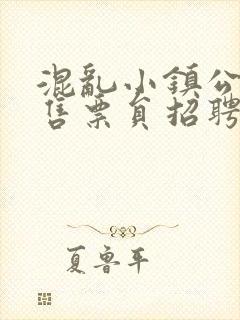 混亂小鎮公
售票員招聘
夏魯平